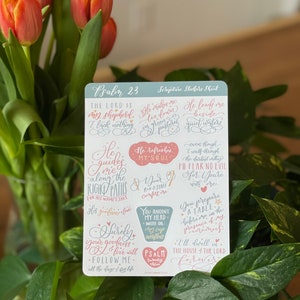 Psalm 23
Scripture Sticker Sheet
THE LORD IS
my shepherd,
I lack nothing
He makes me
lie down
in green
pastures
He leads me
beside
quiet waters
He refreshes
MY SOUL
He
guides
me
along the
RIGHT
PATHS
for his name's
sake
even though
I walk
through
the darkest valley
I WILL FEAR NO
EVIL
for you are
with me
YOU ANOINT
MY HEAD
WITH OIL
my cup
overflows
You prepare
A TABLE
before me
Surely
your goodness
& love will
FOLLOW ME
all the days of my life
PSALM
twenty
three
I'll dwell
IN THE HOUSE OF THE LORD
Forever